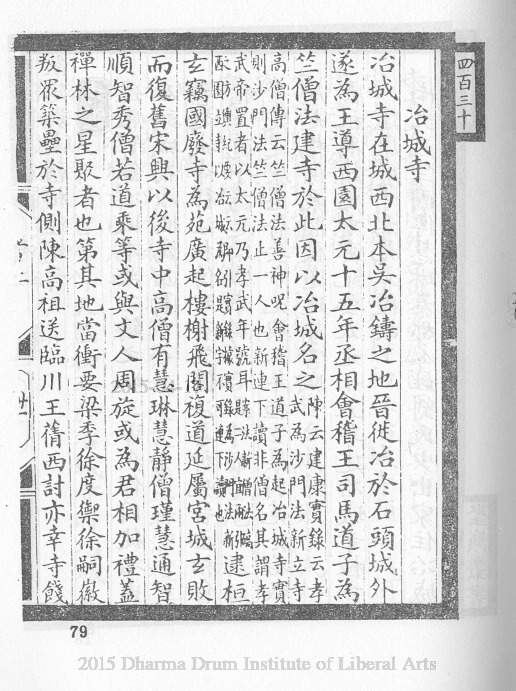 四百三十
冶城寺
冶城寺在城西北本吳冶鑄之地晉徙冶於石頭城外
遂為王導西園太元十五年丞相會稽王司馬道子為
竺僧法建寺於此因以冶城名之陳云建康實錄云孝
武為沙門法新立寺
高僧傳云竺僧法善神呪會稽王道子為起冶城寺實
則沙門法竺僧法止一人也新連下讀非僧名其謂孝
武帝置者以太元乃孝武年號耳
逮桓
玄竊國廢寺為苑廣起樓榭飛閣複道延屬宮城玄敗
而復舊宋興以後寺中高僧有慧琳慧靜僧瑾慧通智
順智秀僧若道乘等或與文人周旋或為君相加禮蓋
禪林之星聚者也第其地當衝要梁季徐度禦徐嗣徽
叛眾築壘於寺側陳高祖送臨川王蒨西討亦幸寺餞
79
2015 Dharma Drum Institute of Liberal Arts